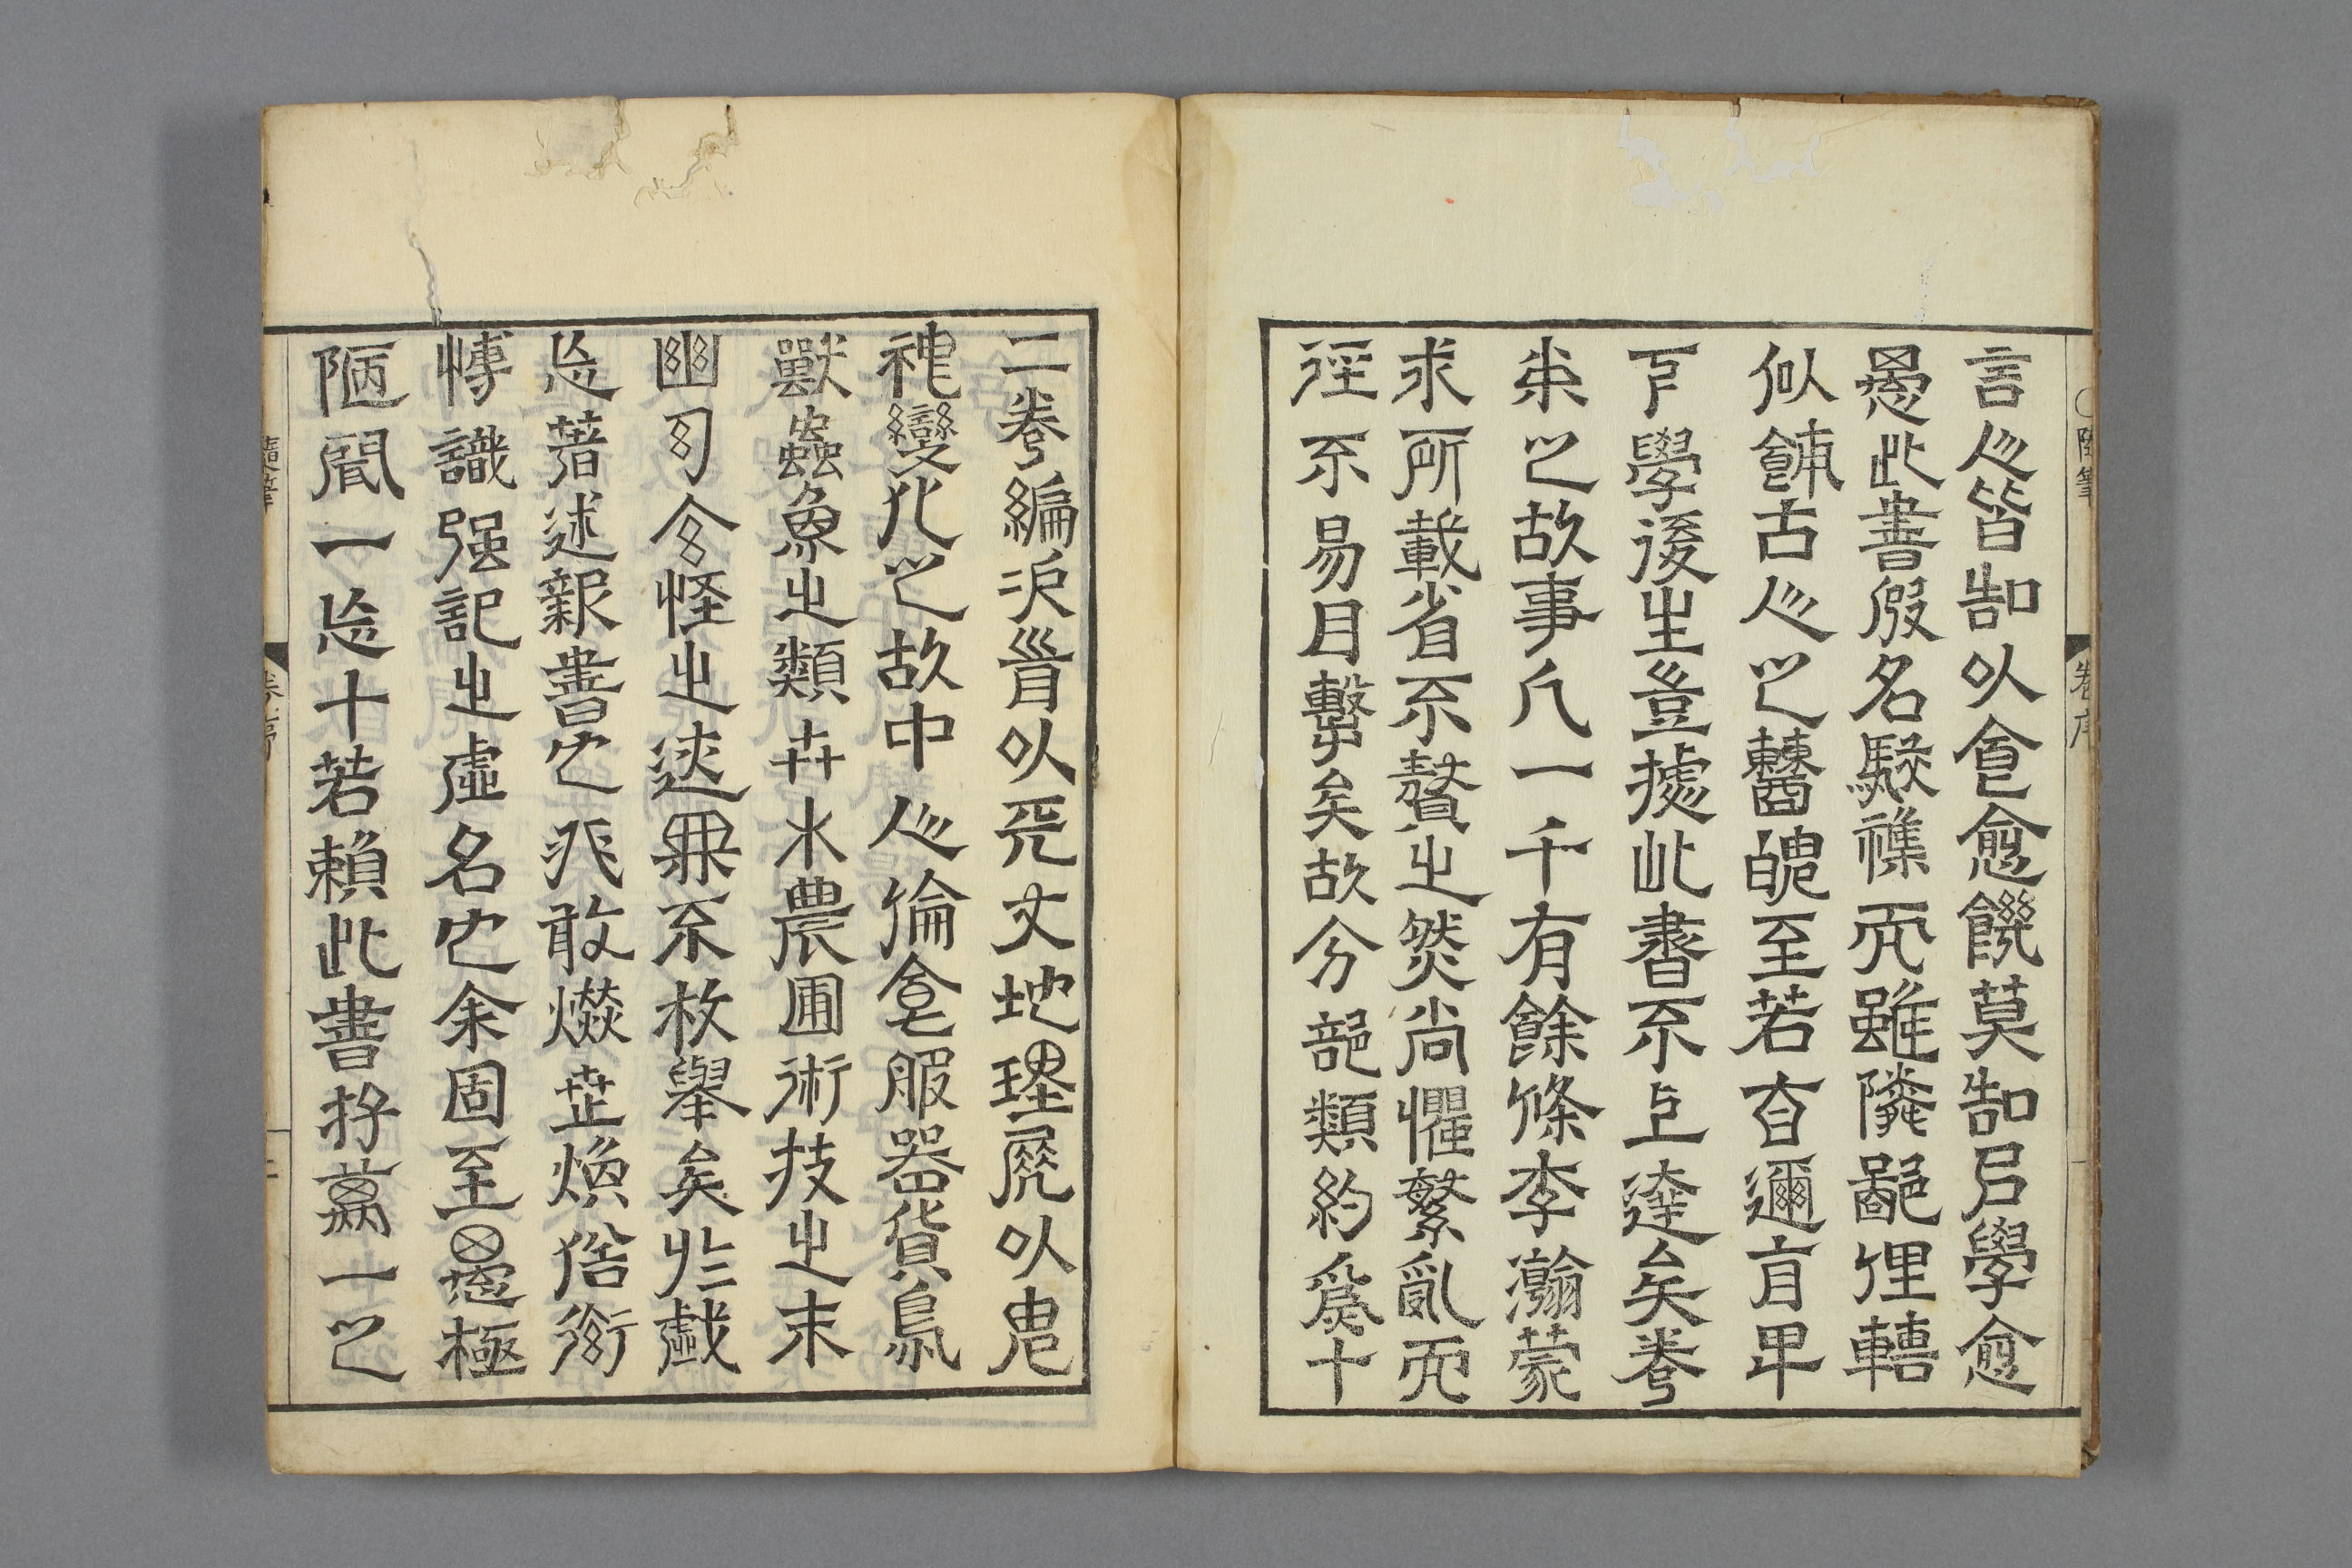 言人皆知以食愈饑莫知以學愈
愚此書假名駁雜而雖隣鄙俚轉
似餔古人之糟魄至若邇盲甲
下學後生豈據此書不上達矣卷
之故事凡一千有餘條李瀚蒙
求所載省不贅之然尚懼繁亂而
徑不易目擊矣故分部類約爲十
二卷編次首以天文地理尾以鬼
神變化之故中人倫食服器貨鳥
獸蟲魚之類卉木農圃術技之末
幽幻今怪之迹無不枚舉矣於戲
忘著述艱書也非敢燃煥俗衒
博識强記之虛名也余固至愚極
陋聞一忘十若賴此書拯萬一之